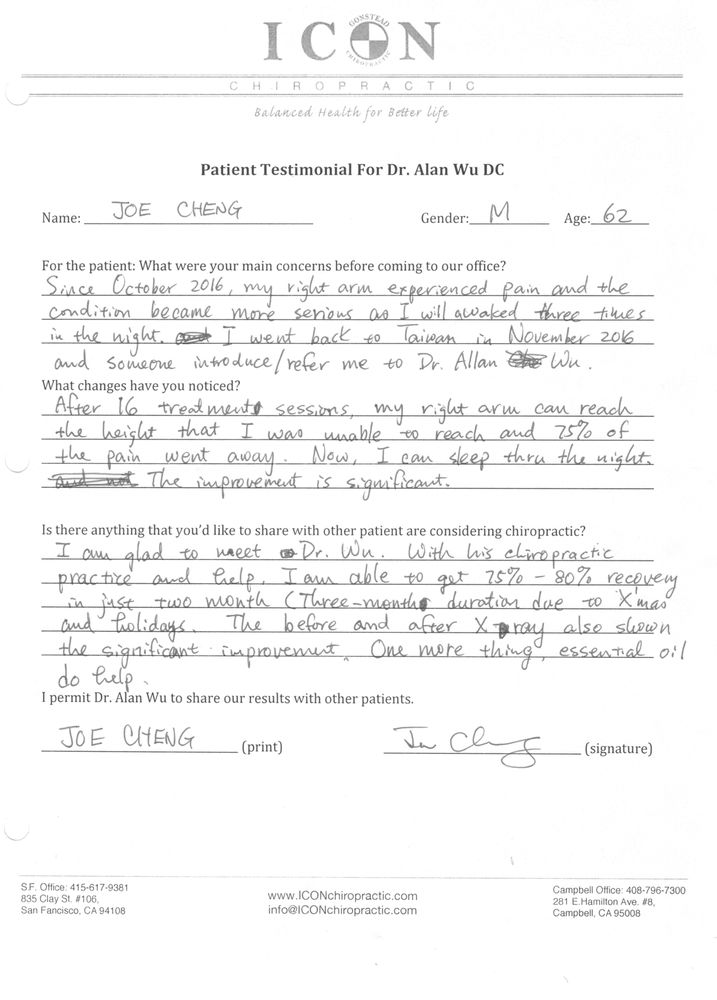 ICON
GONSTEAD
CHIROPRACTIC
CHIROPRACTIC
Balanced Health for Better life
Patient Testimonial For Dr. Alan Wu DC
Name: JOE CHENG Gender: M Age: 62
For the patient: What were your main concerns before coming to our office?
Since October 2016, my right arm experienced pain and the
condition became more serious as I will awaked three times
in the night. I went back to Taiwan in November 2016
and someone introduce/refer me to Dr. Allan Wu.
What changes have you noticed?
After 16 treatment sessions, my right arm can reach
the height that I was unable to reach and 75% of
the pain went away. Now, I can sleep thru the night.
The improvement is significant.
Is there anything that you'd like to share with other patient are considering chiropractic?
I am glad to meet Dr. Wu. With his chiropractic
practice and help, I am able to get 75% - 80% recovery
in just two month (Three-month duration due to X'mas
and holidays. The before and after X ray also shown
the significant improvement. One more thing, essential oil
do help.
I permit Dr. Alan Wu to share our results with other patients.
JOE CHENG (print) Joe Cheng (signature)
S.F. Office: 415-617-9381
835 Clay St. #106,
San Fancisco, CA 94108
www.ICONchiropractic.com
info@ICONchiropractic.com
Campbell Office: 408-796-7300
281 E.Hamilton Ave. #8,
Campbell, CA 95008